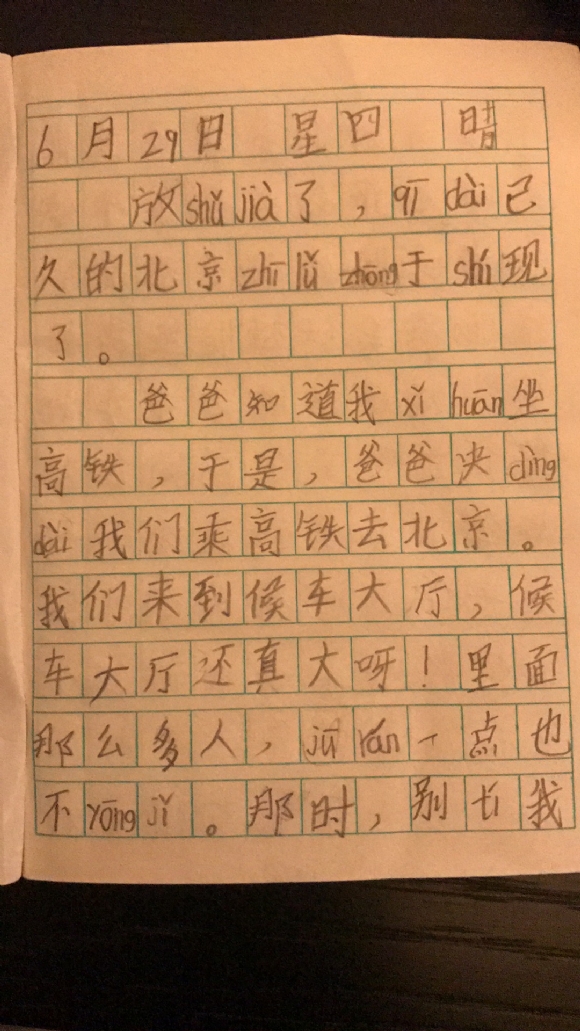 6月29日 星四 晴
放shǔ jià了，qī dài已
久的北京zhī lǚ zhōng于shí现
了。
爸爸知道我xǐ huān坐
高铁，于是，爸爸决dìng
dài我们乘高铁去北京。
我们来到候车大厅，候
车大厅还真大呀！里面
那么多人，jū rán一点也
不yōng jǐ。那时，别tí我